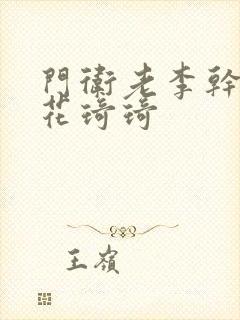 門衛老李幹
花琦琦
王嶺